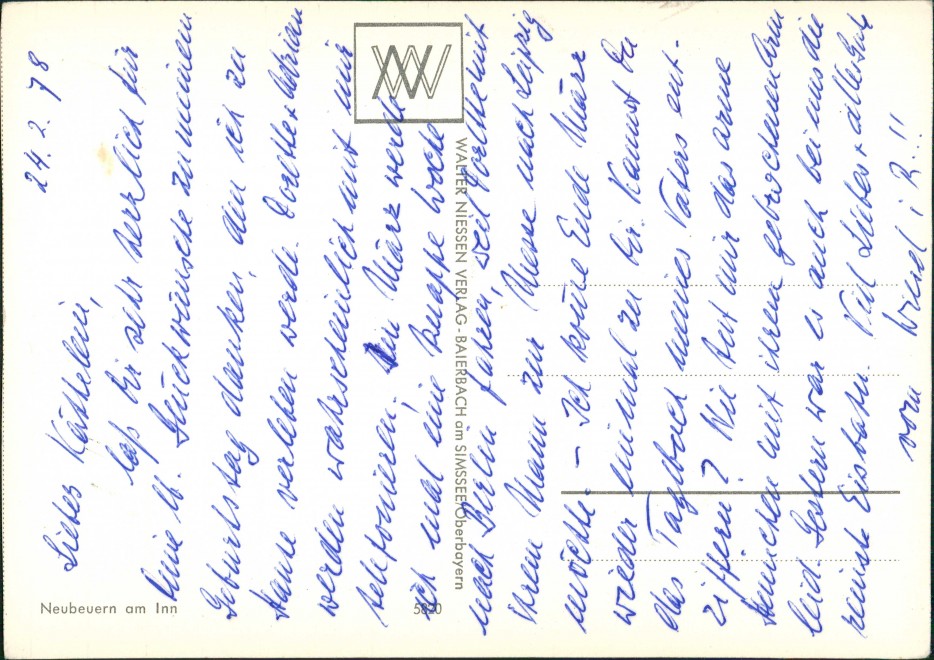 24. 2. 78
Liebes Käthelein,
laß Dir sehr herzlich für
Deine lb. Glückwünsche zu meinem
Geburtstag danken, den ich zu
Hause verleben werde. Dorthe + Adrian
werden wahrscheinlich mit mir
telefonieren. Im März werde
ich mal eine knappe Woche
nach Berlin fahren, weil Dorthe mit
ihrem Mann zur Messe nach Leipzig
möchte. – Ich könnte Ende März
wieder einmal zu Dir. Kannst Du
das Tagebuch meines Vaters ent-
ziffern? Wie tut mir das arme
Annchen mit ihrem gebrochenen Arm
leid. Gestern war es auch bei uns die
reinste Eisbahn. Viel Liebes + alles Gute
von Wiesel i. R.!!
WALTER NIESSEN VERLAG - BAIERBACH am SIMSSEE/Oberbayern
Neubeuern am Inn
5820